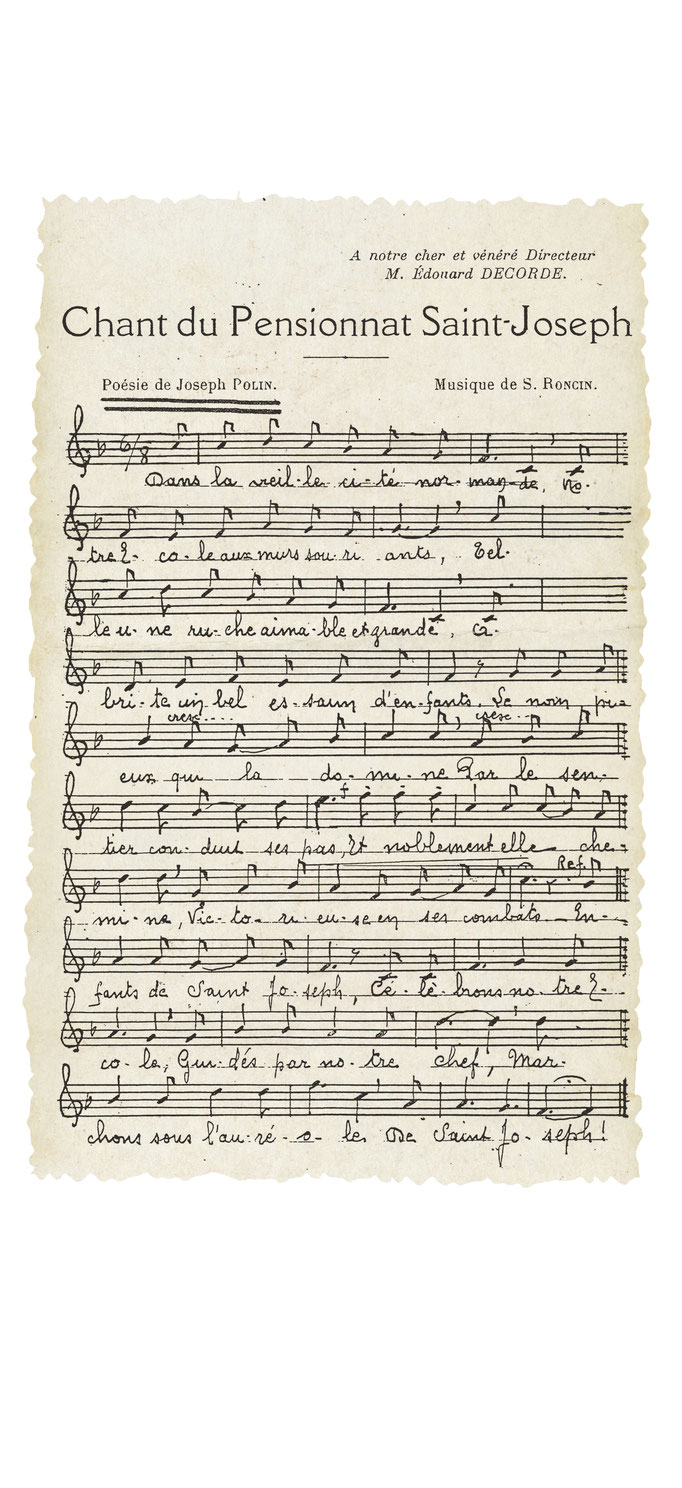 A notre cher et vénéré Directeur
M. Édouard DECORDE.
Chant du Pensionnat Saint-Joseph
Poésie de Joseph POLIN.
Musique de S. RONCIN.
6/8
Dans la vieil-le ci-té nor-man-de, No-
tre É-co-le aux murs sou-ri ants, Tel-
le u-ne ru-che aima-ble et grande, A-
bri-te un bel es-saim d'en-fants. Le nom pi-
cresc.... cresc...
eux qui la do-mi-ne Par le sen-
f
tier con-duit ses pas, Et noblement elle che-
Ref.
mi-ne, Vic-to-ri-eu-se en ses combats En-
fants de Saint Jo-seph, Cé-lé-brons no-tre É-
co-le, Gui-dés par no-tre chef, Mar-
chons sous l'au-ré-o-le De Saint Jo-seph!